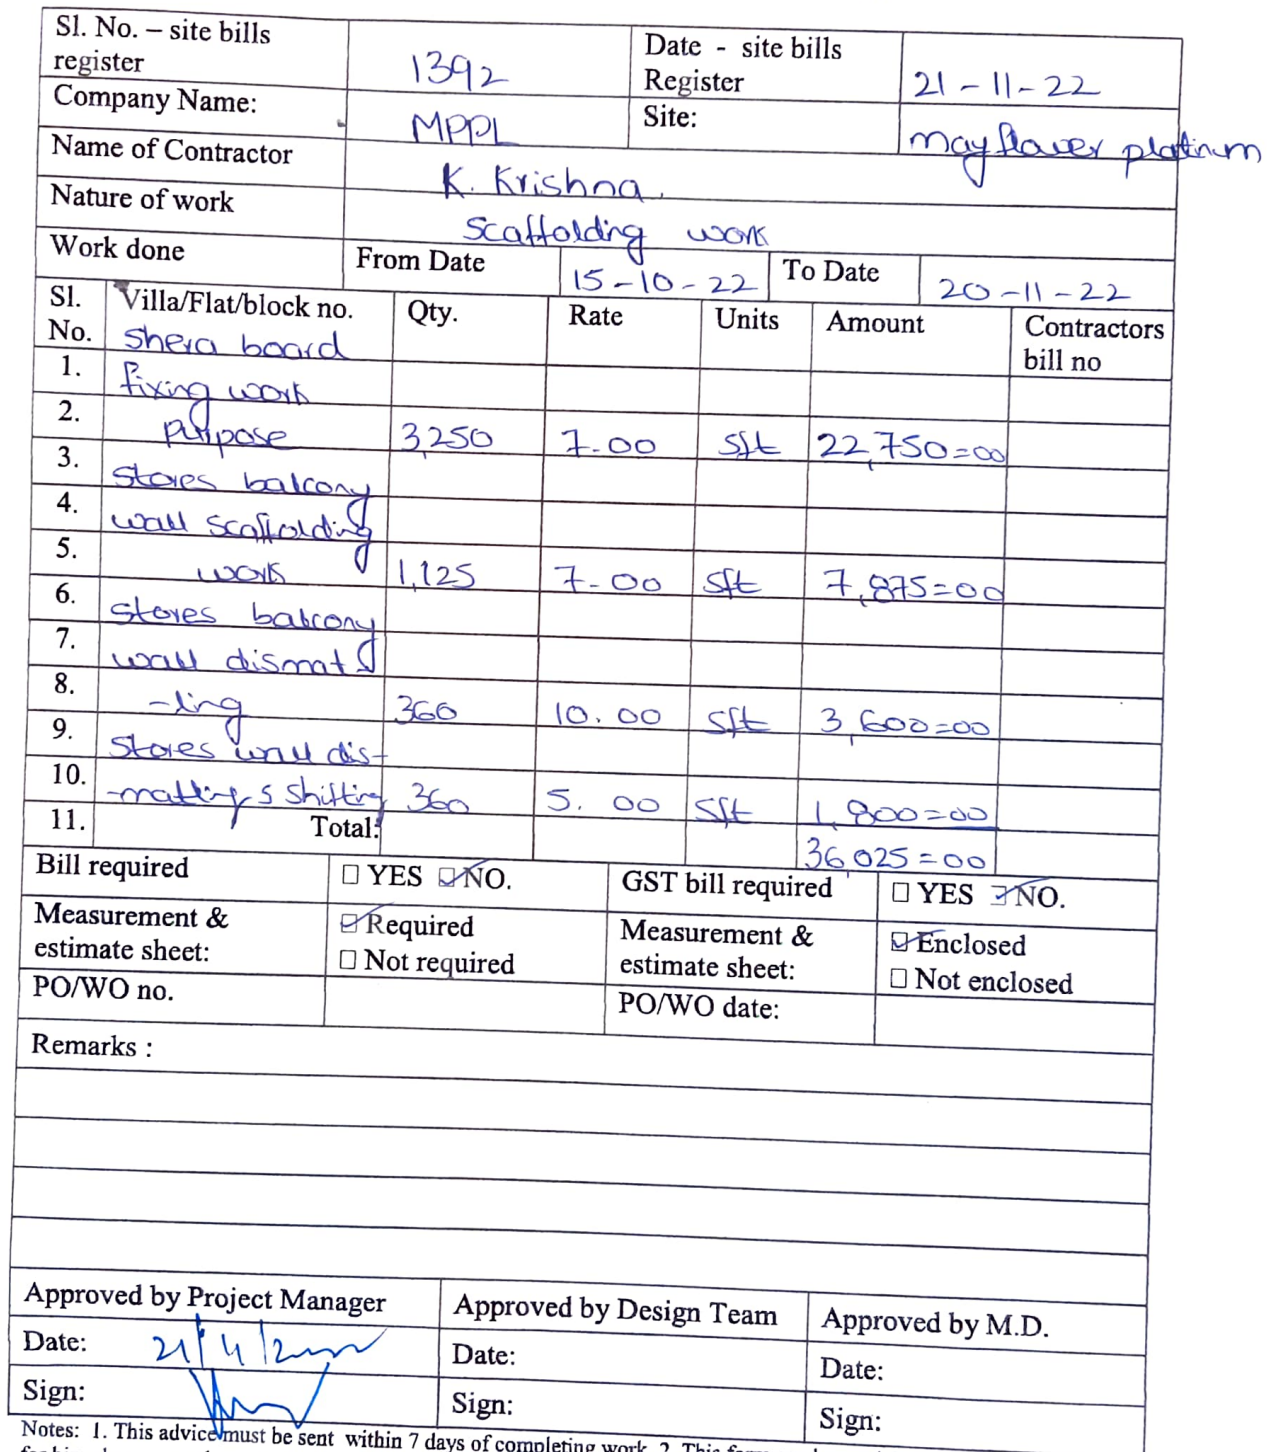 Sl. No. – site bills register 1392 Date - site bills Register 21-11-22
Company Name: MPPL Site: mayflower platinum
Name of Contractor K. Krishna.
Nature of work Scaffolding work
Work done From Date 15-10-22 To Date 20-11-22
Sl. No. Villa/Flat/block no. Qty. Rate Units Amount Contractors bill no
Shera board
1. fixing work
2. purpose 3,250 7.00 sft 22,750=00
3. stores balcony
4. wall scaffolding
5. work 1,125 7-00 sft 7,875=00
6. stores balcony
7. wall dismat
8. -ling 360 10.00 sft 3,600=00
9. stores wall dis-
10. -matling & shifting 360 5.00 sft 1,800=00
11. Total: 36,025=00
Bill required □ YES ☑ NO. GST bill required □ YES ☑ NO.
Measurement & estimate sheet: ☑ Required □ Not required Measurement & estimate sheet: ☑ Enclosed □ Not enclosed
PO/WO no. PO/WO date:
Remarks :
Approved by Project Manager Approved by Design Team Approved by M.D.
Date: Date: Date:
Sign: Sign: Sign:
Notes: 1. This advice must be sent within 7 days of completing work. 2. This form